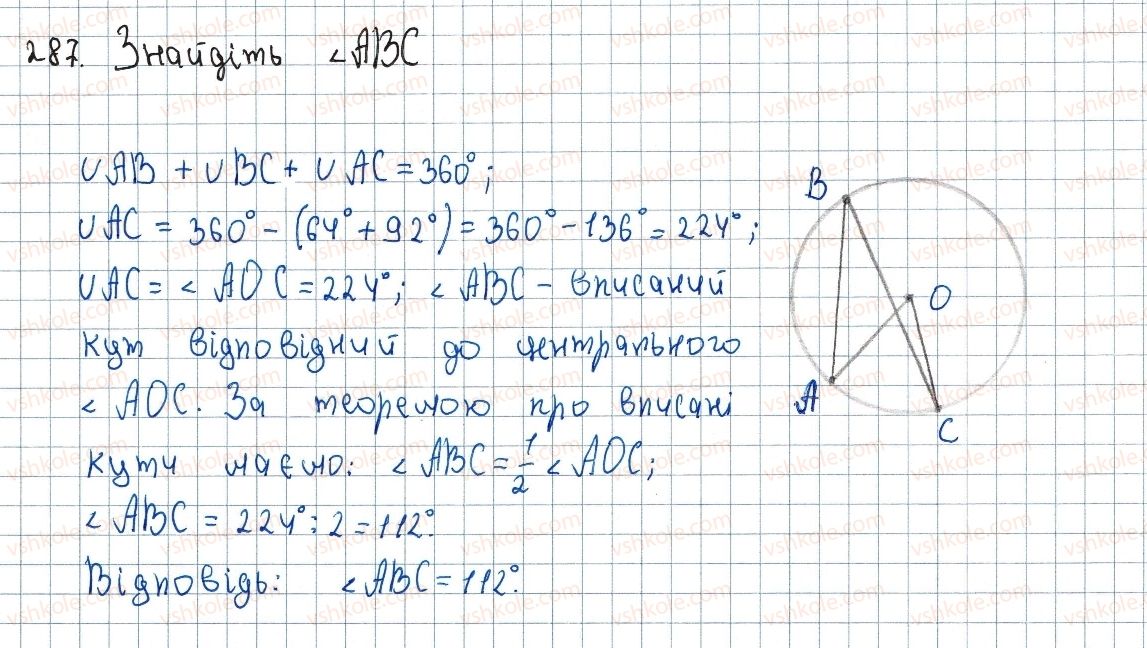 287. Знайдіть <ABC
∪AB + ∪BC + ∪AC = 360°;
∪AC = 360° - (64° + 92°) = 360° - 136° = 224°;
∪AC = < AOC = 224°; < ABC - вписаний
кут відповідний до центрального
< AOC. За теоремою про вписані
кути маємо: < ABC = 1/2 < AOC;
< ABC = 224° : 2 = 112°.
Відповідь: <ABC = 112°.
B
O
A
C
vshkole.com